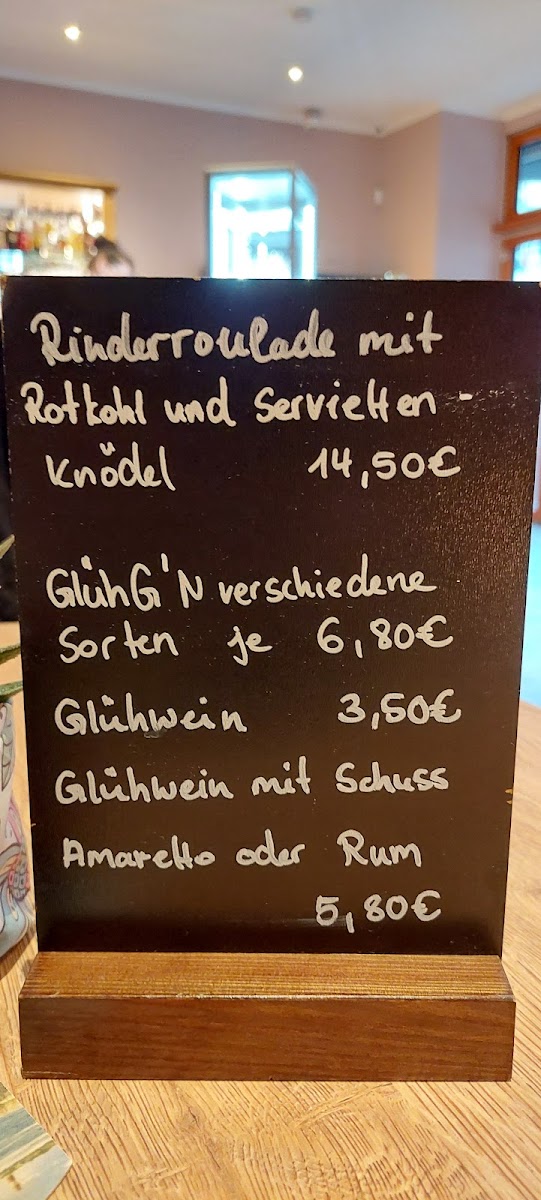 Rinderroulade mit
Rotkohl und Servietten-
Knödel 14,50€
GlühG'N verschiedene
Sorten je 6,80€
Glühwein 3,50€
Glühwein mit Schuss
Amaretto oder Rum
5,80€